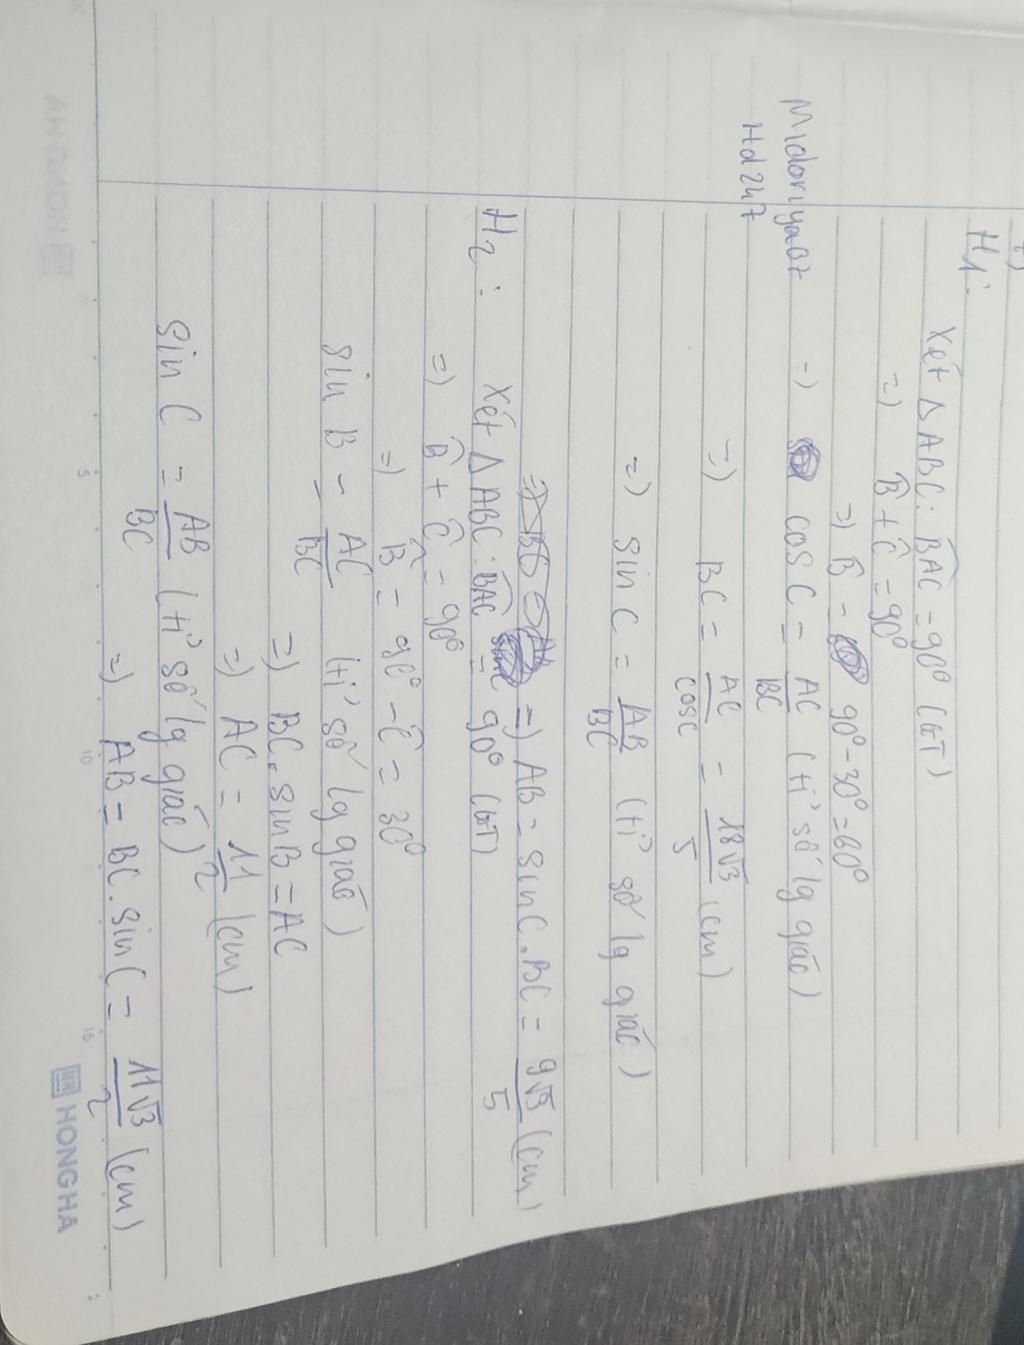 H1:
Xét Δ ABC: BAC = 90° (GT)
=) B̂ + Ĉ = 90°
=) B̂ = 90° - 30° = 60°
Midoriya07 =) cos C = AC/BC (tỉ số lg giác)
Hd2k7
=) BC = AC/cosC = 18√3/5 (cm)
=) sin C = AB/BC (tỉ số lg giác)
=) AB = sin C . BC = 9√3/5 (cm)
H2: Xét Δ ABC: BAC = 90° (GT)
=) B̂ + Ĉ = 90°
=) B̂ = 90° - Ĉ = 30°
sin B = AC/BC (tỉ số lg giác)
=) BC . sin B = AC
=) AC = 11/2 (cm)
sin C = AB/BC (tỉ số lg giác)
=) AB = BC . sin C = 11√3/2 (cm)
5 10 15
HONG HA